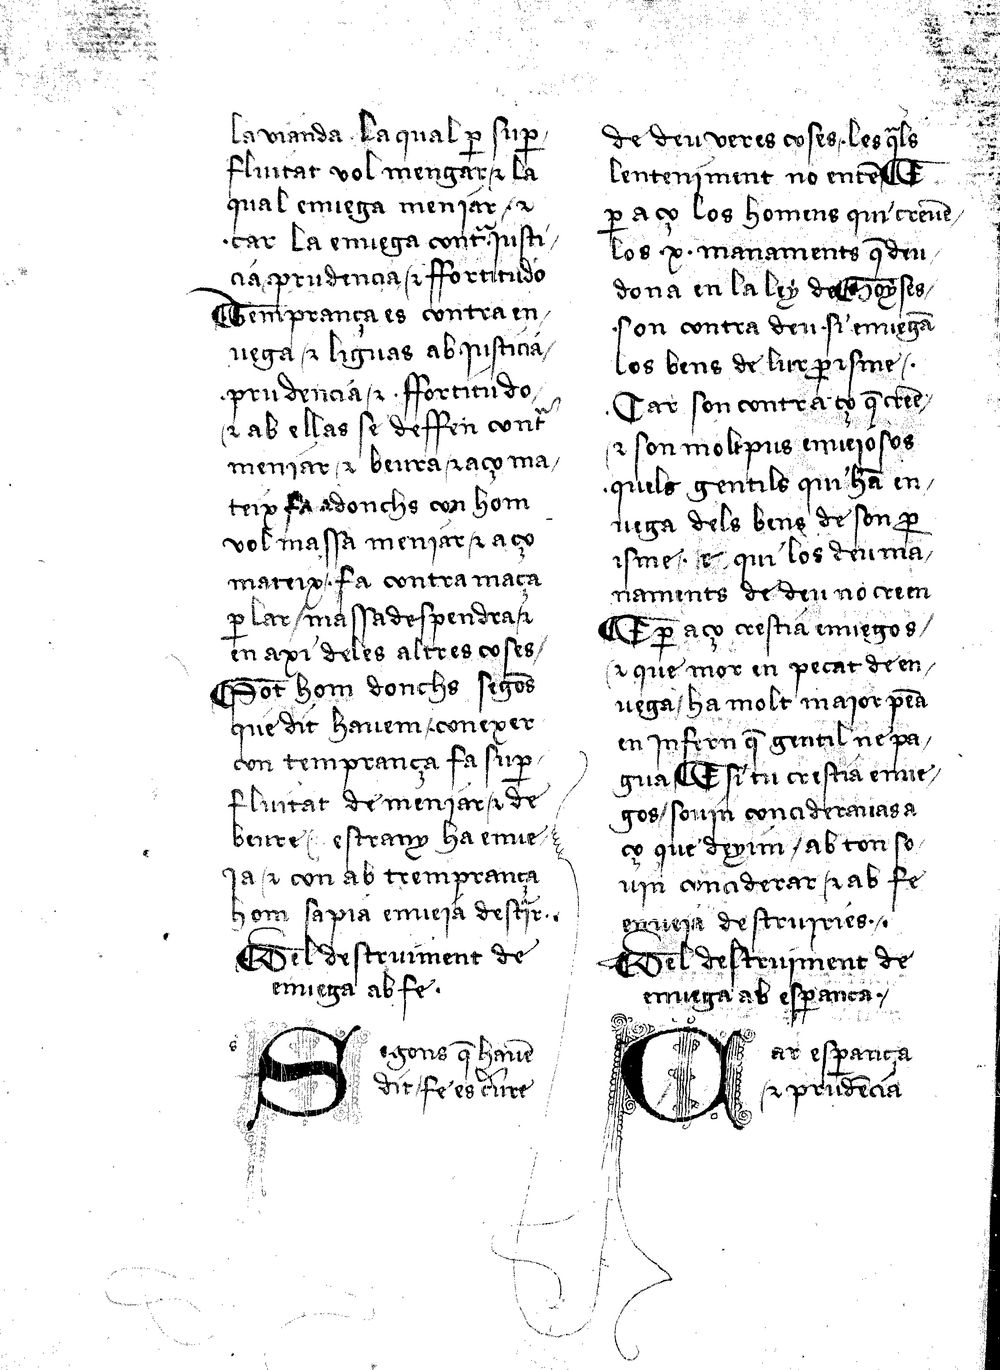 la vianda. La qual ꝑ suꝑ/
fluitat vol mengar/ ⁊ la
qual enuega meniar/ ⁊
·car la enuega contra·justi/
cia·prudencia/ ⁊ ffortitudo
Temprança es contra en/
uega/ ⁊ liguas ab·justicia/
·prudencia/ ⁊ ·ffortitudo/
/⁊ ab ellas se deffen contra
meniar/ ⁊ beura/ ⁊ aço ma/
teix fa adonchs con hom
vol massa meniar/ ⁊ aço
mateix·fa contra maça
ꝑlar/ massa despendra/ ⁊
en axi deles altres coses/
Pot hom donchs segons
que dit hauem/ conexer
con temprança fa suꝑ/
fluitat de meniar/ ⁊ de
beure/ estrany ha enue/
ja/ ⁊ con ab tremprança
hom sapia enueja destr̃ir·/.
Del destruiment de
enuega ab fe·
s Segons q̃ hauẽ
dit/ fe es c̃ure
de deu veres coses·les q̃ls
lenteniment no entẽ E
ꝑ aço los homens qui creuẽ/
los ·x· manaments q̃ deu
dona en la ley de Moyses/
·son contra deu·si enuegã
los bens de lur ꝑisme/·
·Car son contra ço q̃ creẽ/
/⁊ son molt pus enuejosos
·quels gentils qui hã en/
uega dels bens de son ꝑ
isme·⁊ qui los deu ma/
naments de deu no creen
E ꝑ aço crestia enuegos/
/⁊ que mor en pecat de en/
uega/ ha molt major pẽa
en jnfern q̃ gentil ne pa/
gua E si tu crestia enue/
gos/ souin concideraua s a
ço que deyim/ ab ton so/
uin conciderar/ ⁊ ab fe
enueja destruiries·/.
Del destruiment de
enuega ab esꝑança·/
Car esꝑança
/⁊ prudẽcia